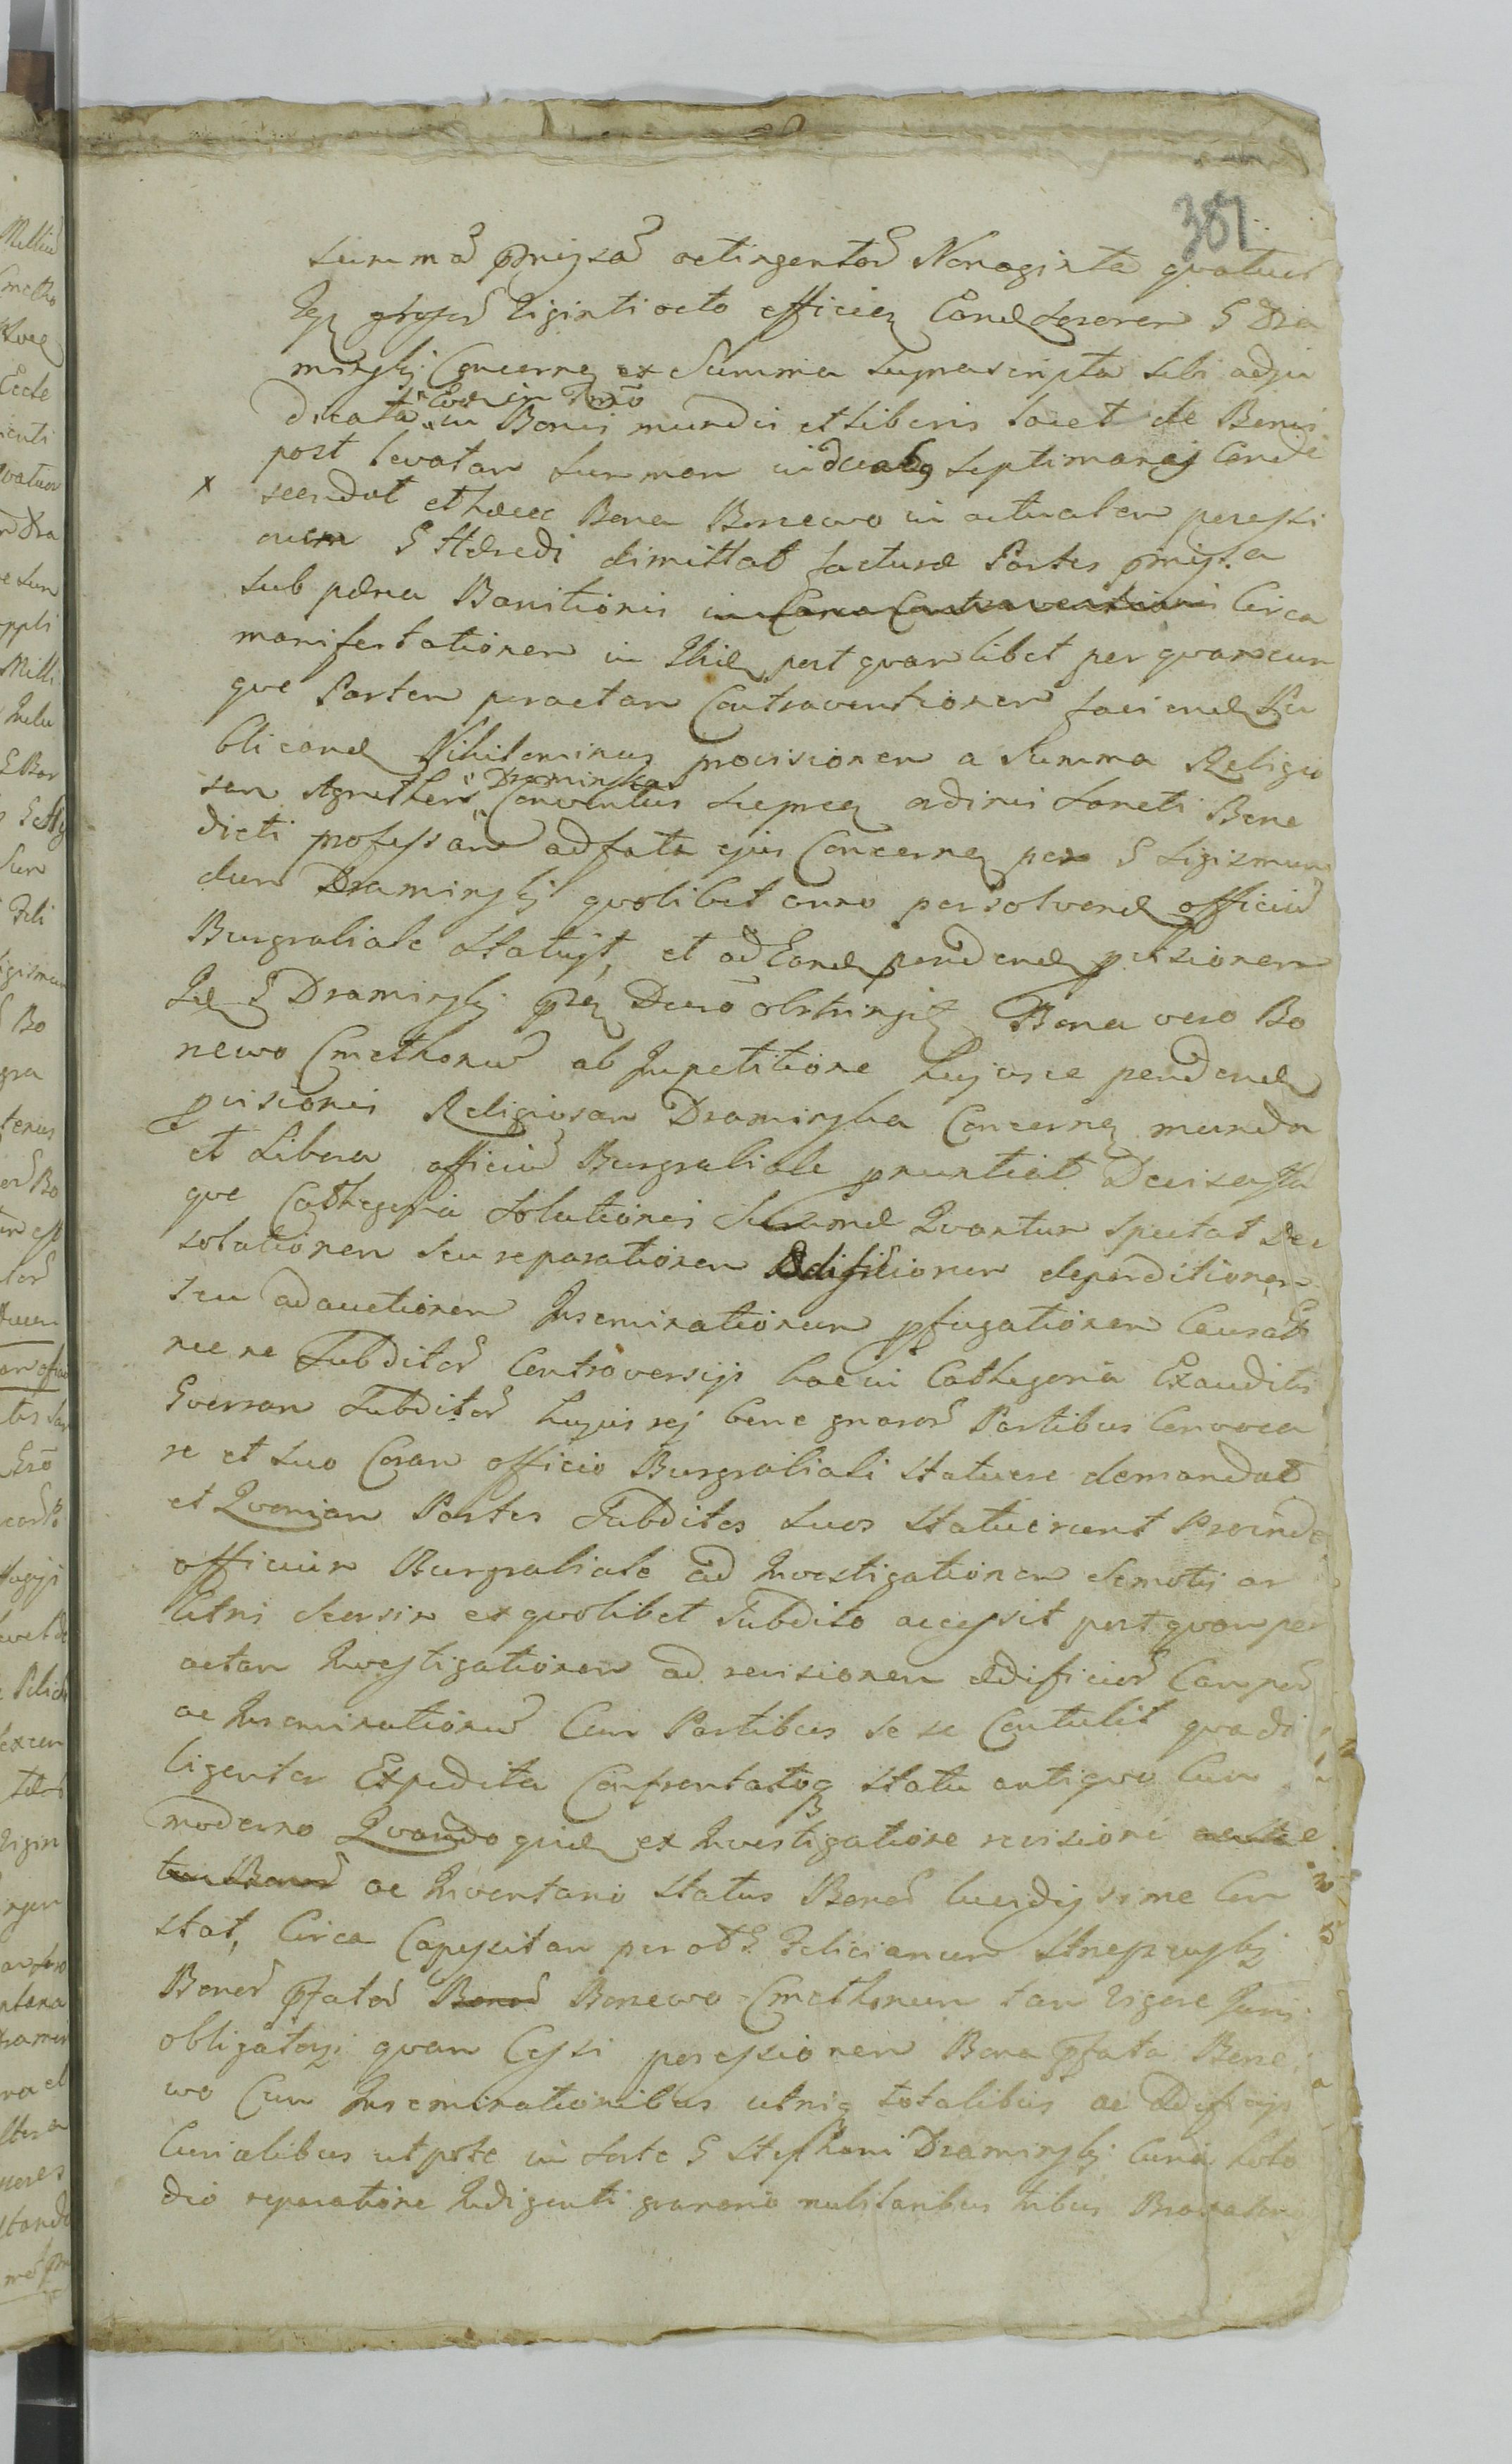 381
summa pmissa octingentor Nonaginta quatuor
grossor Viginti octo efficien Eand G Dra
minski Concernen ex Summa suprascripta sibi adju
dicata Eod in Tmo in Bonis mundis et liberis locet de Bonis
post levatam summam in duabus septimanis Conde
x scendat et haec Bona Bonewo in actualem possessi
onem G Haeredi dimittat facturae Partes pmissa
sub paena Banitionis in Casu Contraventionis Circa
manifestationem in post quamlibet per quamcun
que Partem peractam Contraventionem faciend Pu
blicand Nihilominus provisionem a Summa Religio
sam Agnethem Draminska Conventus Sieprcen ordinis Sancti Bene
dicti professam ad fata ejus Concernen per G Sigismun
dum Draminski quolibet anno persolvend officium
Burgrabiale statuit, et ad Eand pendend pvisionem
G Draminski Decro obstringit Bona vero Bo
newo Cmethonum ab Impetitione hujusce pendend
pvisionis Religiosam Draminska Concernen munda
et Libera officium Burgrabiale pnuntiat Decisa Ita
que Cathegoria solutionis Summae Quantum spectat De
solationem seu reparationem Aedificiorum deperditionem
seu adauctionem Inseminationum pfugationem Causat
nec ne Subditor Controversijs hac in Cathegoria Exauditis
Gverram Subditor hujus rej bene gnaror Partibus Convoca
re et suo Coram officio Burgrabiali statuere demandat
et Quoniam Partes Subditos suos statuerunt Proinde
officium Burgrabiale ad Investigationem semotis ar
bitris seorsim ex quolibet Subdito accessit post quam per
actam Investigationem ad revisionem aedificior Campor
ac Inseminationum Cum Partibus se se Contulit qua di
ligenter Expedita Confrontatoq statu antiquo Cum
moderno Quandoquid ex Investigatione revisione
ac Inventario status Bonor lucidissime Con
stat, Circa Capessitam per olim G Felicianum
Bonor pfator Bonor Bonewo Cmethonum tam vigore Juris
obligatorij quam Cessi possessionem Bona pfata Bone
wo Cum Inseminationibus utrisq totalibus ac Aedificijs
Curialibus utpote in sorte G Stephani Draminski Curia
dio reparatione Indigenti granario tribus